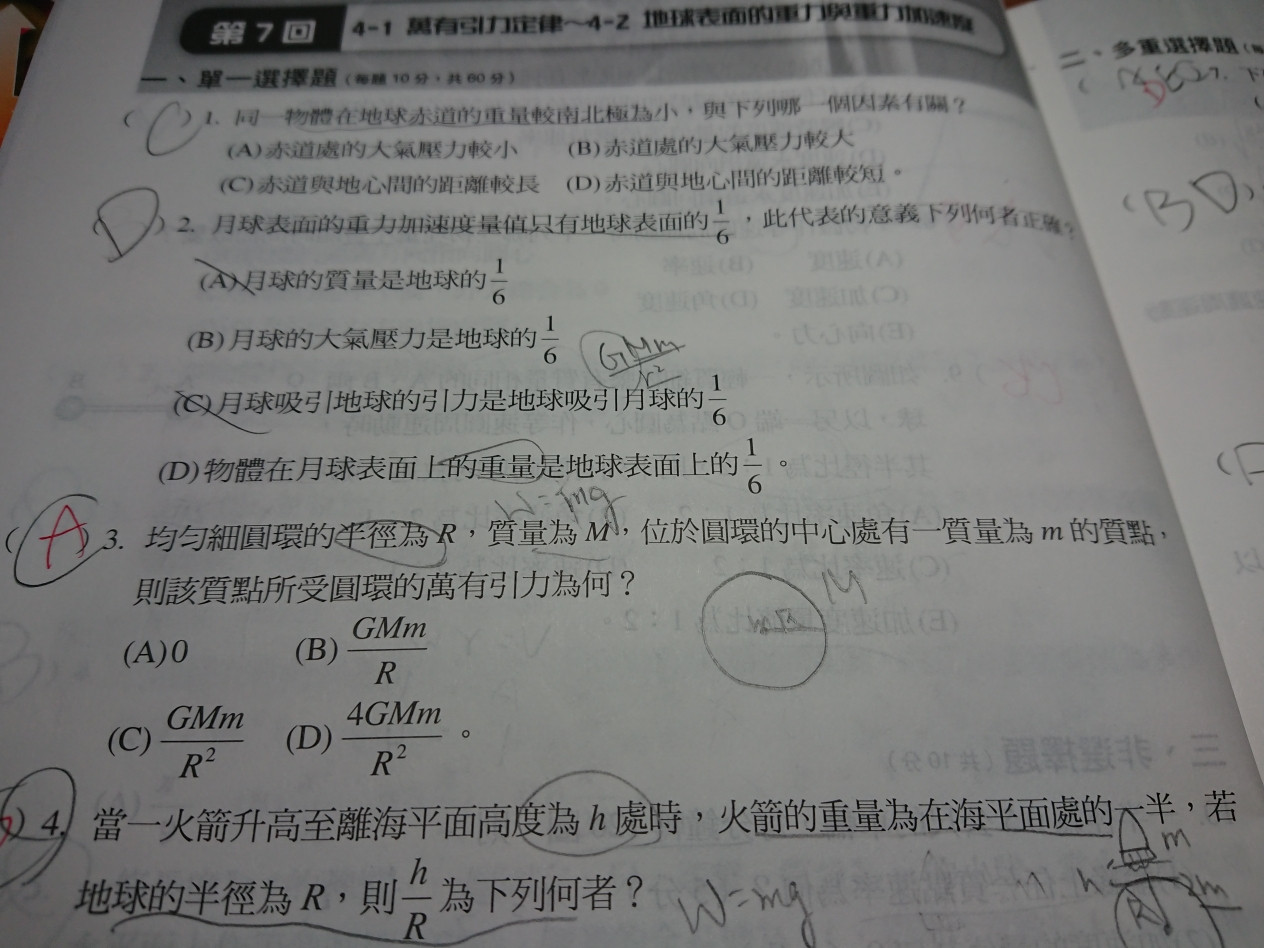 第7回 4-1 萬有引力定律～4-2 地球表面的重力與重力加速度
一、單一選擇題(每題10分,共60分)
(C)1. 同一物體在地球赤道的重量較南北極為小,與下列哪一個因素有關?
(A)赤道處的大氣壓力較小 (B)赤道處的大氣壓力較大
(C)赤道與地心間的距離較長 (D)赤道與地心間的距離較短。
(D)2. 月球表面的重力加速度量值只有地球表面的1/6,此代表的意義下列何者正確?
(A)月球的質量是地球的1/6
(B)月球的大氣壓力是地球的1/6
GMm/r²
(C)月球吸引地球的引力是地球吸引月球的1/6
(D)物體在月球表面上的重量是地球表面上的1/6。
W=mg
(A)3. 均勻細圓環的半徑為R,質量為M,位於圓環的中心處有一質量為m的質點,
則該質點所受圓環的萬有引力為何?
M
m R
(A)0 (B)GMm/R
(C)GMm/R² (D)4GMm/R²。
)4. 當一火箭升高至離海平面高度為h處時,火箭的重量為在海平面處的一半,若
m
地球的半徑為R,則h/R為下列何者?
W=mg
h
R
m
二、多重選擇題
7. 下
(BD)